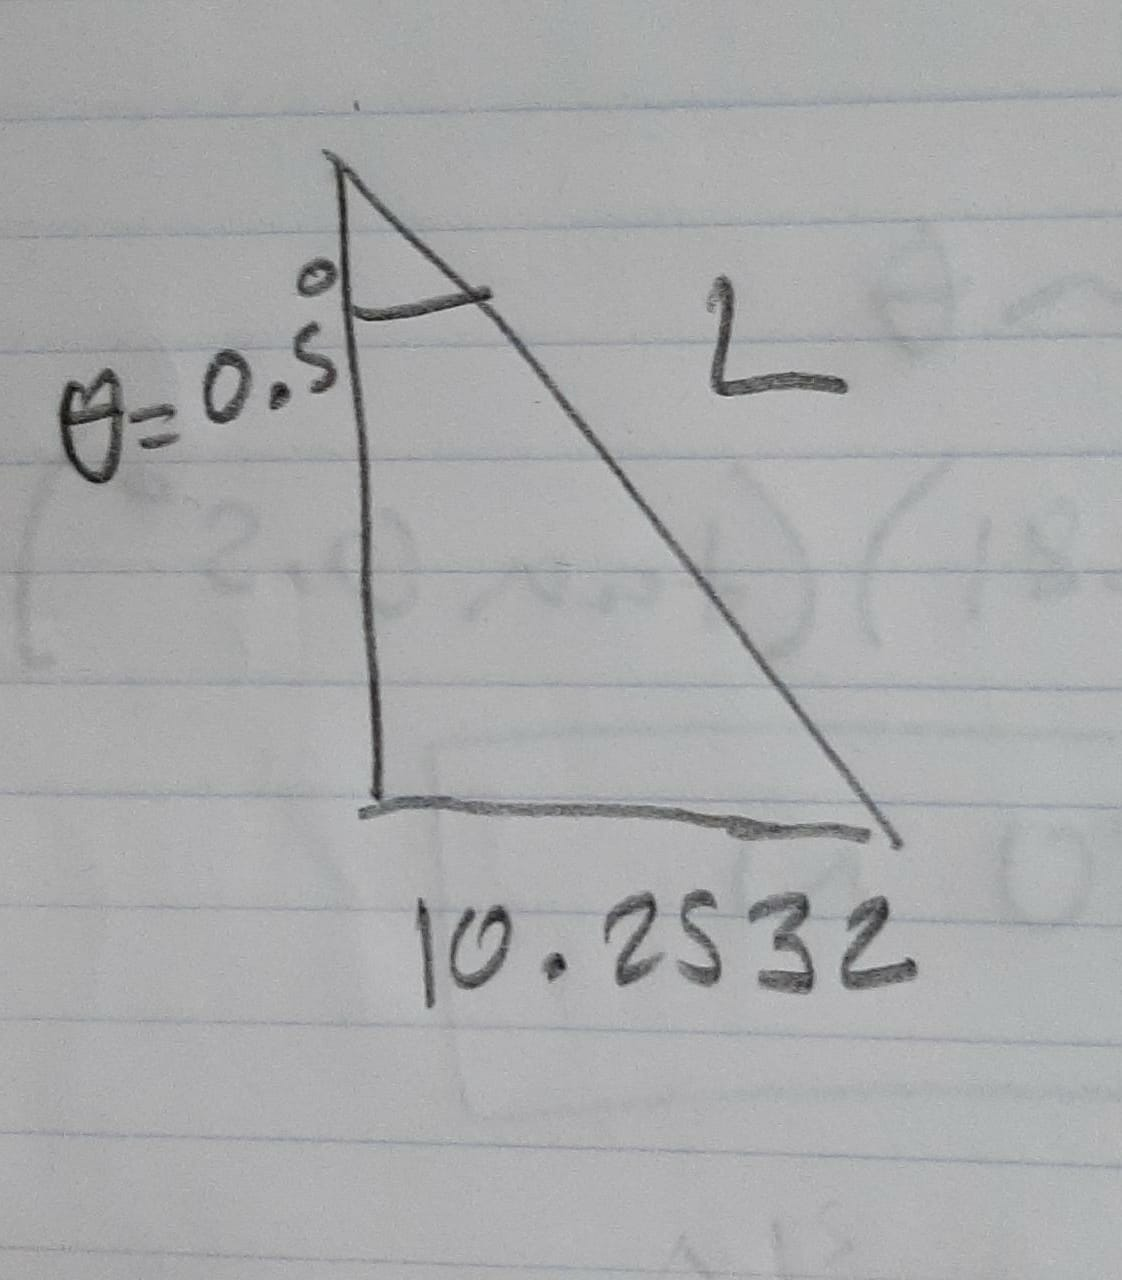 L
θ=0.5°
10.2532